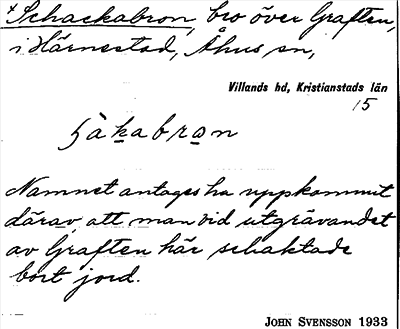 × Schackabron, bro över Graften,
i Härnestad, Åhus sn,
Villands hd, Kristianstads län
15
s̀àkabro̲n
Namnet antages ha uppkommit
därav, att man vid utgrävandet
av Graften här schaktade
bort jord.
JOHN SVENSSON 1933